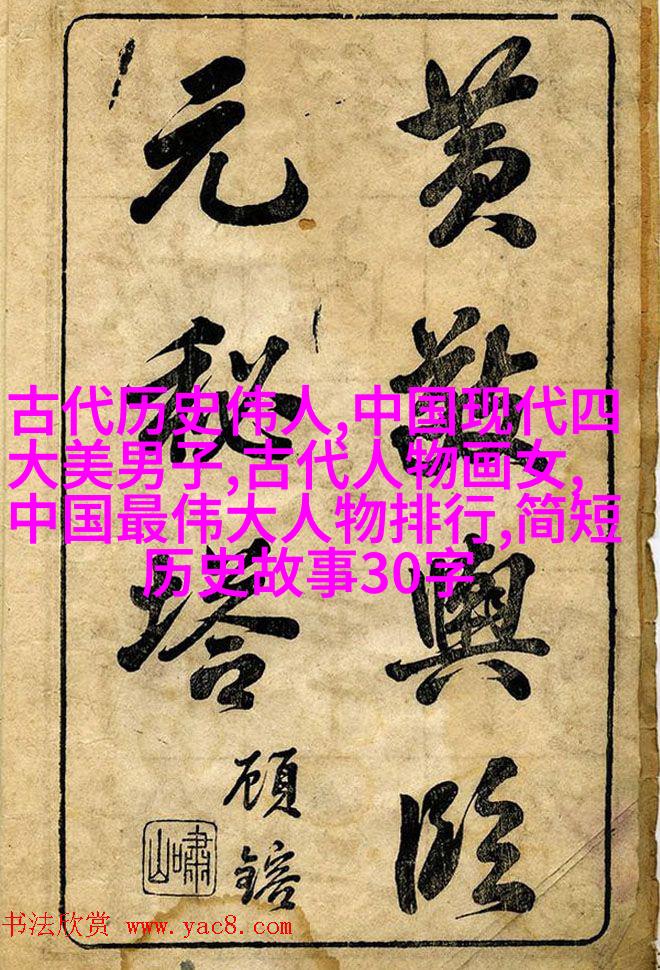 黃敬輿臨
元秘塔
顧鎔
嘯山
古代历史伟人,中国现代四
大美男子,古代人物画女,
中国最伟大人物排行,简短
历史故事30字
书法欣赏 www.yac8.com